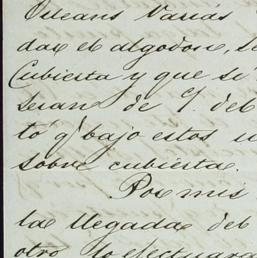 Orleans varias
das el algodon, se
Cubierta y que si
sean de c/. del
to q' bajo estos
sobre cubierta.
Por mis
la llegada del
otro lo efectuara